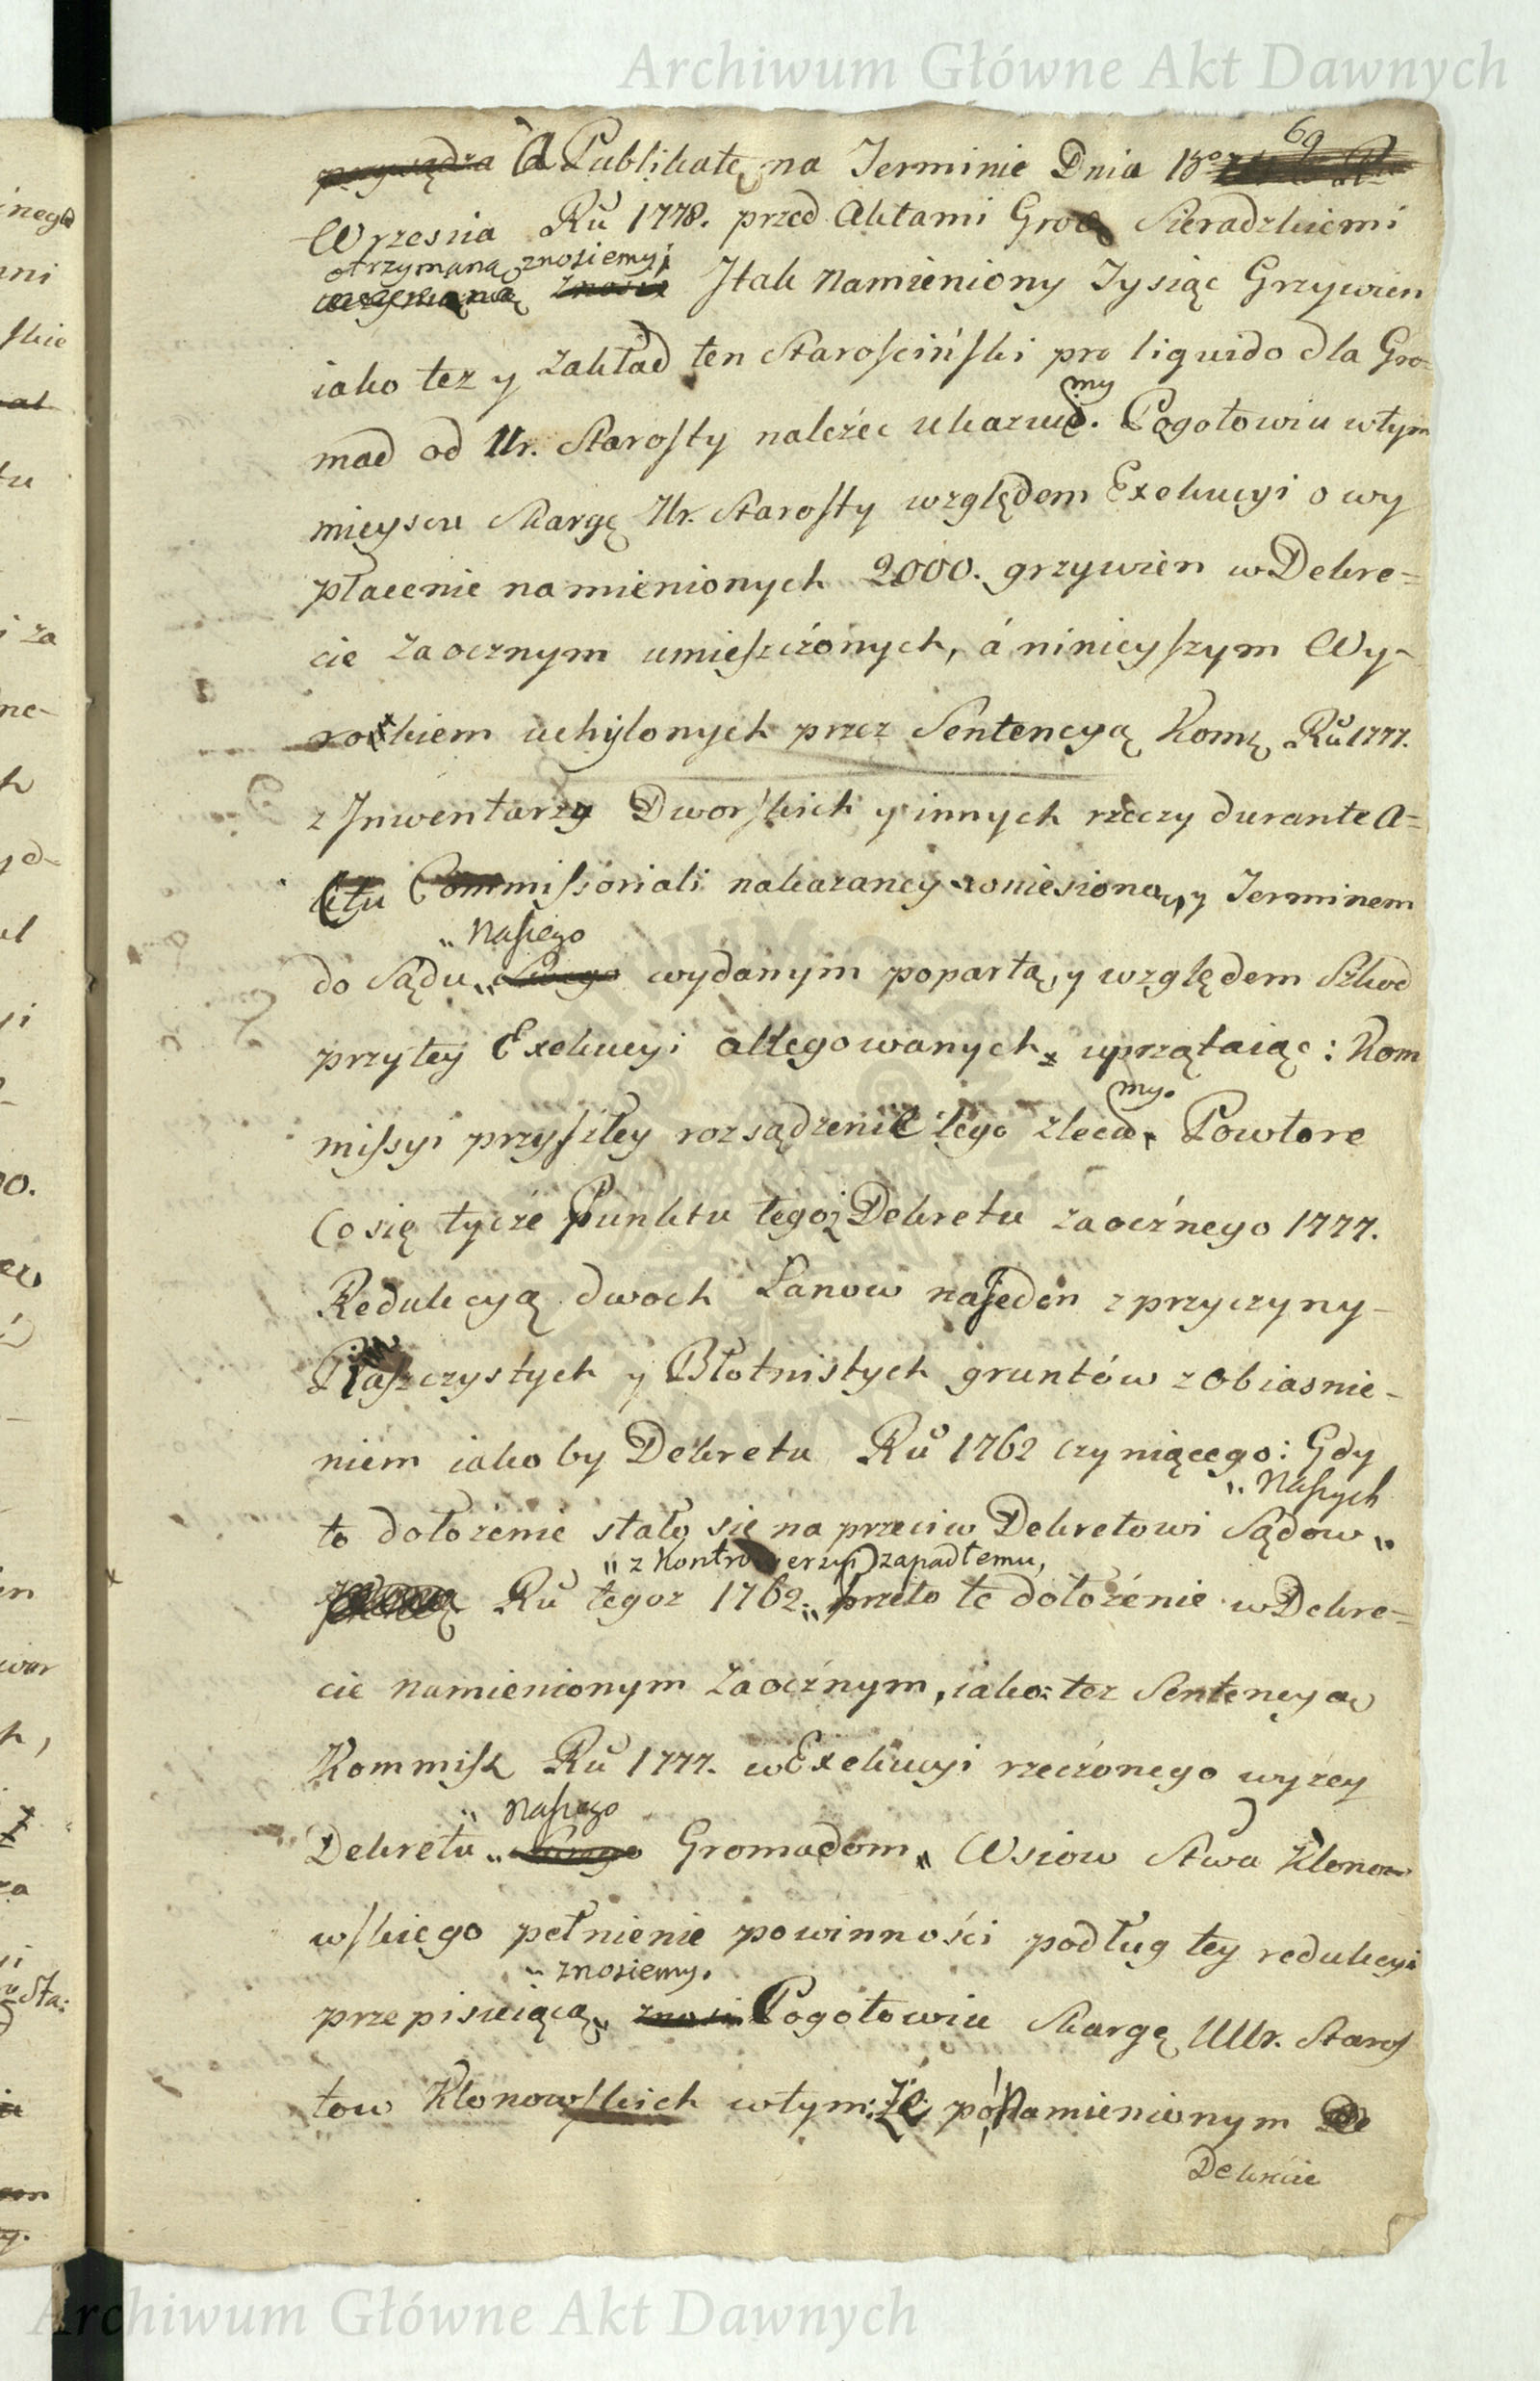 Archiwum Główne Akt Dawnych
69
A Publikatę na Terminie Dnia 18º
Wrzesnia Ru 1778. przed Aktami Grod Sieradzkiemi
otrzymaną znosiemy;
Itak Namieniony Tysiąc Grzywien
iako tez y zakład ten Starosciński pro liquido dla Gro=
my
mad od Ur. Starosty nalézéc ukazuie. Pogotowiu wtym
mieyscu Skargę Ur. Starosty względem Exekucyi o wy
płacenie namienionych 2000. grzywien w Dekre=
cie zaocznym umieszczonych, á ninieyszym Wy-
rokiem uchylonych przez Sentencyą Komą Ru 1777.
z Inwentarzy Dworskich y innych rzeczy durante A=
ktu Commissoriali nakazaney wniesioną, y Terminem
" Naszego
do Sądu " Swego wydanym popartą, y względem Szkod
przytey Exekucyi allegowanych uprzątaiąc: Kom
my.
missyi przyszłey rozsądzenie tego zleca. Powtore
Co się tycze Punktu tegoż Dekretu zaocznego 1777.
Redukcyą dwoch Łanow na jeden z przyczyny-
Piaszczystych y Błotnistych gruntów z obiasnie-
niem iakoby Dekretu Ru 1762 czyniącego: Gdy
" Naszych
to dołożenie stało się na przeciw Dekretowi Sądow "
" z Kontrowersyi zapadłemu,
Ru tegoz 1762. " przeto te dołożénie w Dekre=
cie namienionym zaocznym, iako: tez Sentencya
Kommiss Ru 1777. w Exekucyi rzeczonego wyżey
" Naszego
Dekretu " Swego Gromadom " Wsiow Stwa Klonow
wskiego pełnienie powinności podług tey redukcyi
" znosiemy.
przepisuiącą " znosi Pogotowiu Skargę UUr. Staros
tow Klonowskich wtym: Że pó Namienionym De
Dekrecie
Archiwum Główne Akt Dawnych